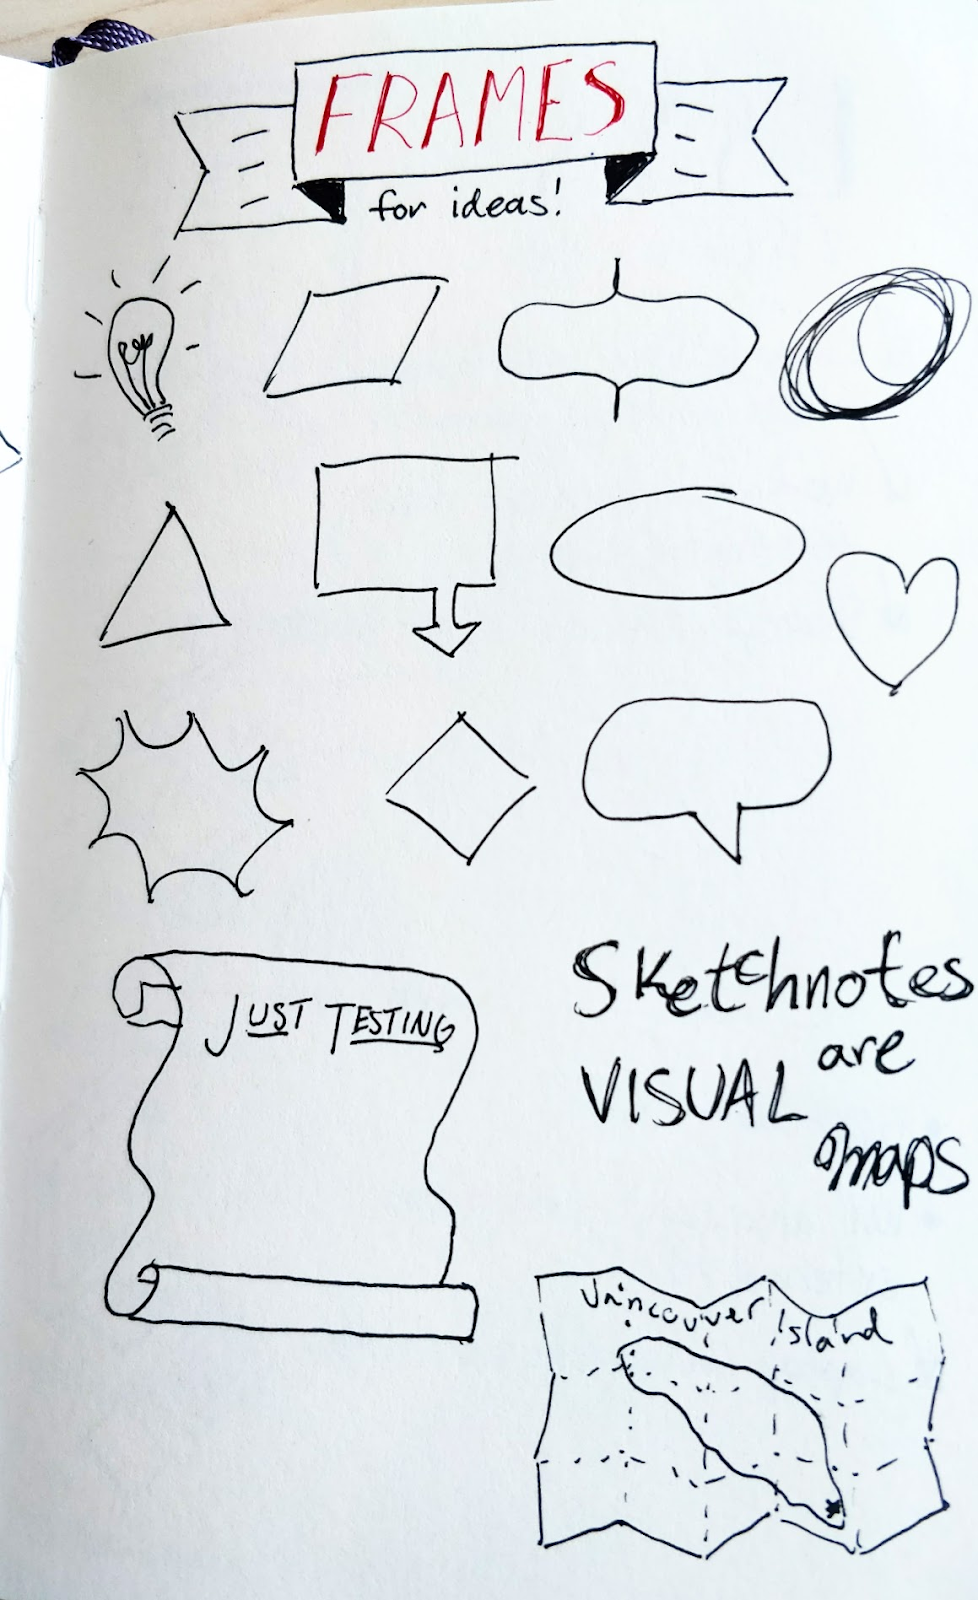 FRAMES
for ideas!
JUST TESTING
Sketchnotes
are
VISUAL
maps
Vancouver Island